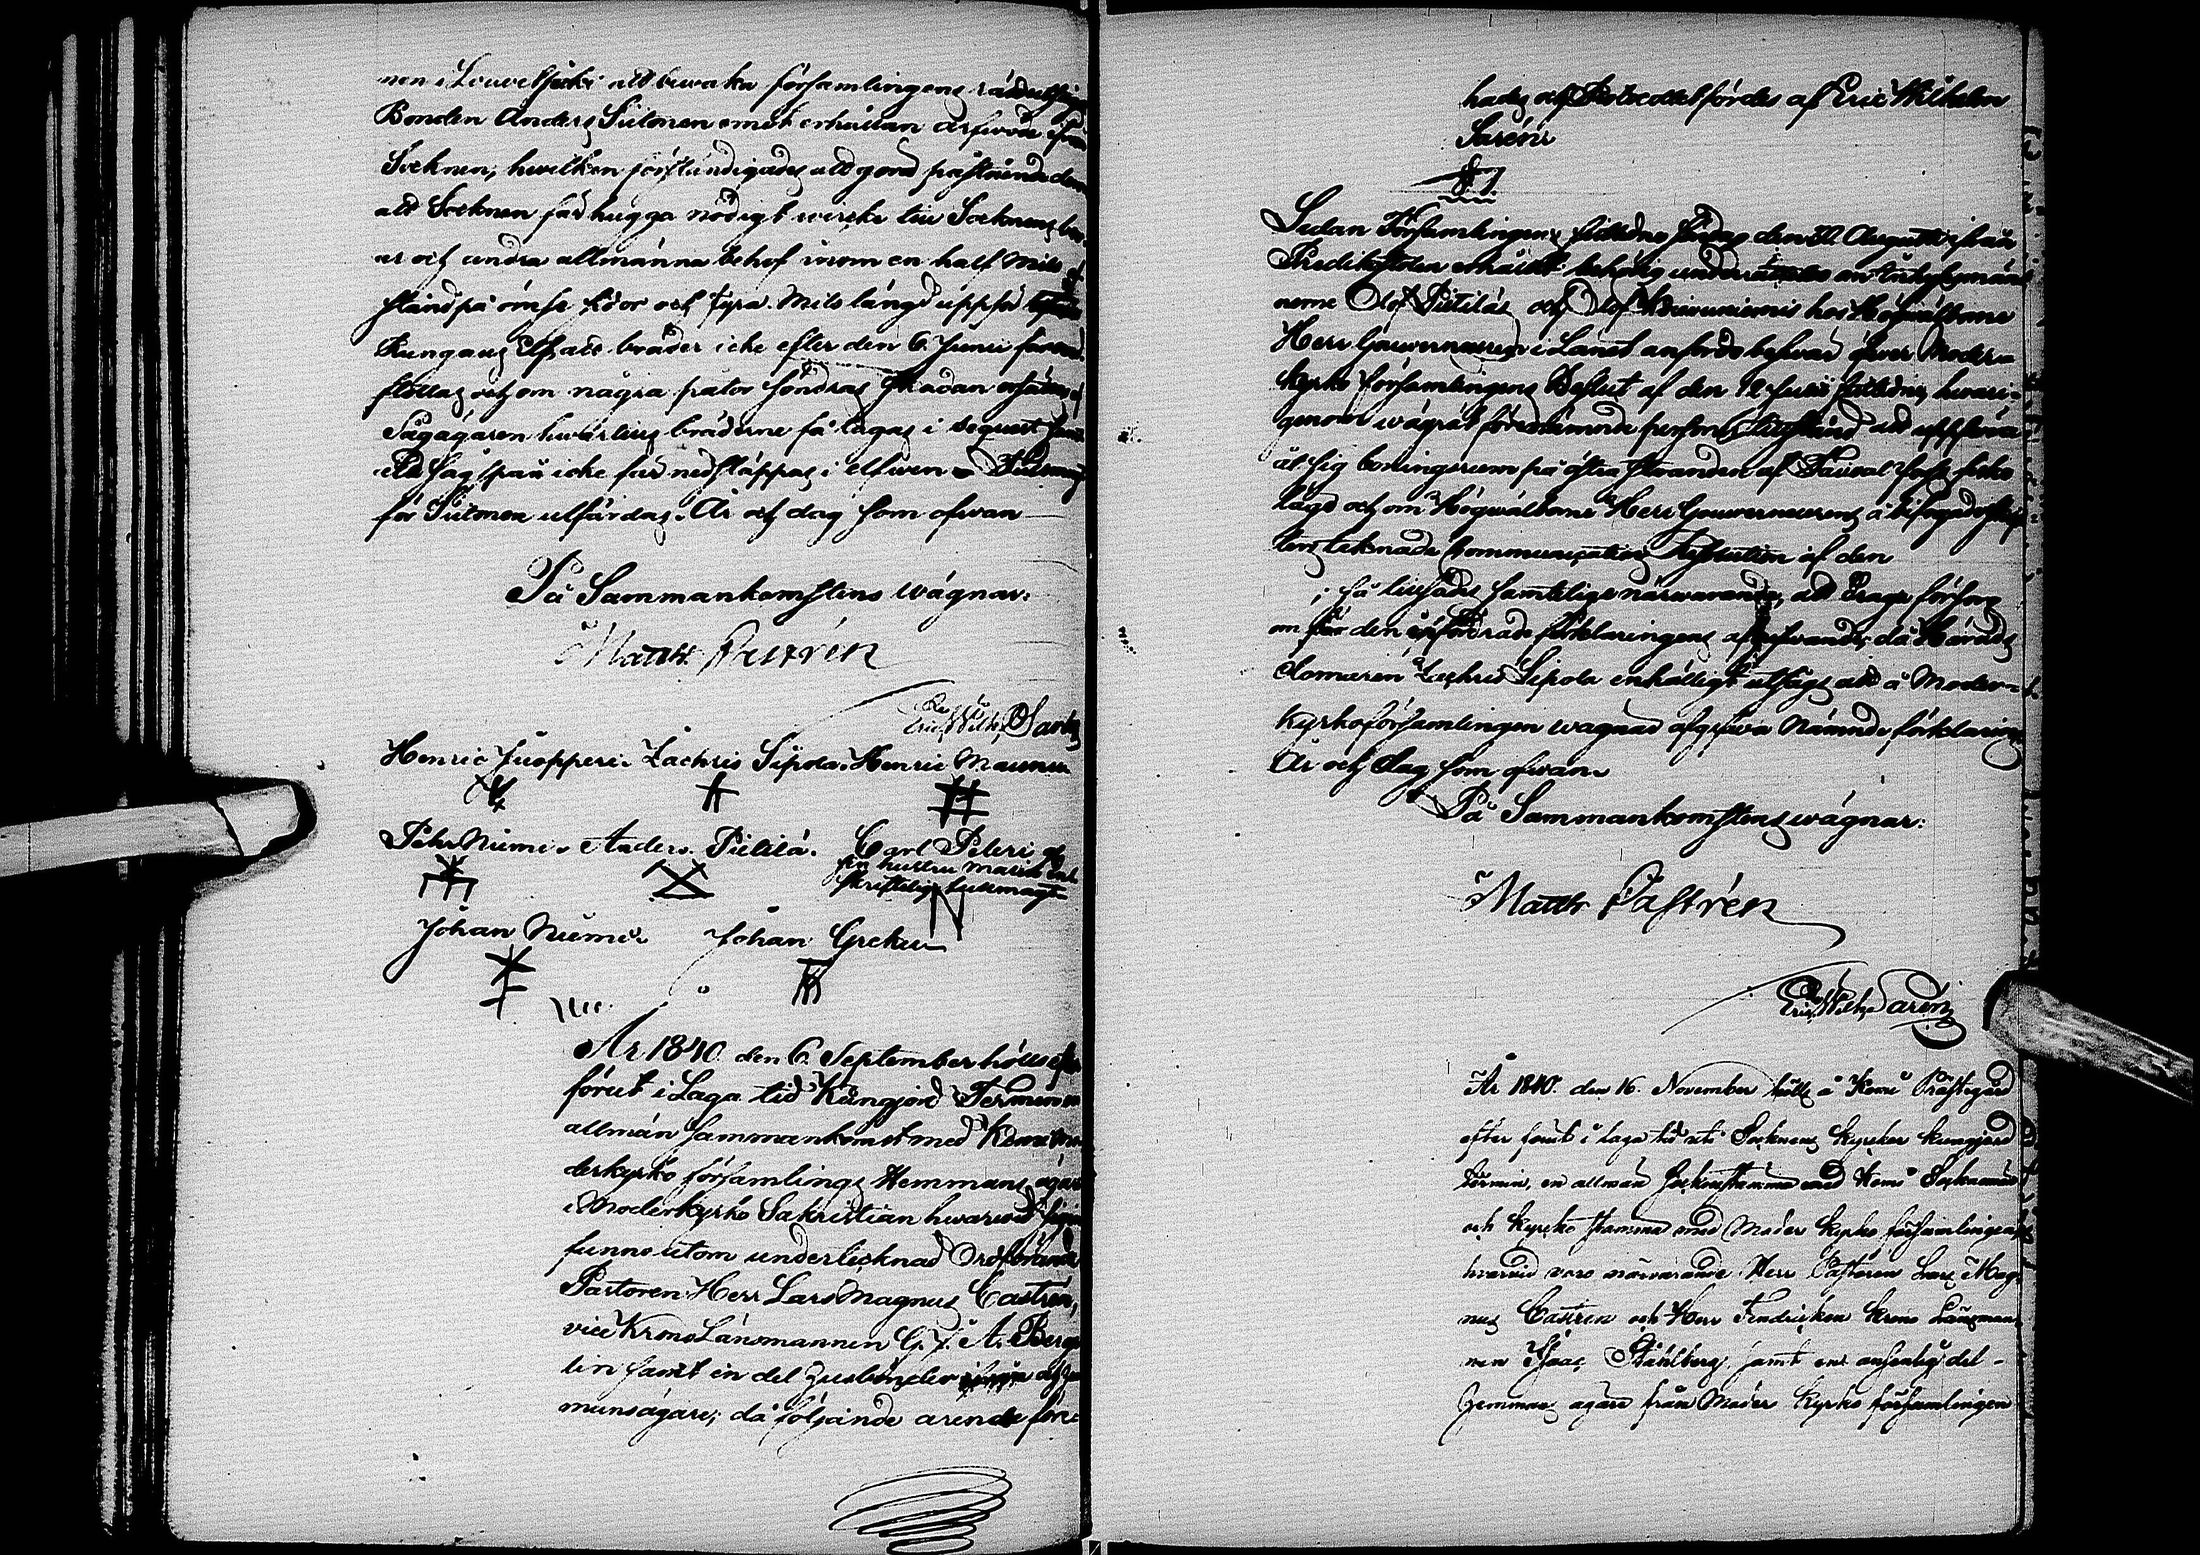 nen i att bewaka församlingens
Bonden Anders Siitonen emot erhållan
Socknen, hwilken förständigades att gord påstående
att Socknen får hugga nödigt wirke till Socknens
ar och andra allmänna behof inom en half Mils
stånd på ömse sidor och fyra Mils längd uppför
att bräder icke efter den 6. Junii
flottas och om några påtor söndras skadan
Sågägaren hwartill bräderne få tagas i sequest
att sågspån icke får nedsläppas i elfwen
för Siitonen utfärdas. År och dag som ofwan
På Sammankomstens wägnar:
Matth. Castrén
Eric Wilh. Sarén
Henric Juopperi. Zachris Sipola. Henric Maunu
Pehr Niemi Anders Pietilä. Carl Peteri
sin hustru
skriftlig fullmagt
Johan Niemi Johan Greku
År 1840 den 6. September hölls
förut i Laga tid Kungjord Termin
allmän sammankomst med Kemi
derkyrko församlings Hemmans ägare
i Moderkyrko Sakristian hwarwid
funno utom undertecknad Ordförande
Pastoren Herr Lars Magnus Castrén,
vice Krono Länsmannen G. J. A. Berg
lin samt en del
mansägare; då följande ärende för:
hades och Protocollet fördes af Eric Wilhelm
Sarén
§ 1.
Sedan Församlingen sistledne söndag den 30. Augusti ifrån
Predikstolen erhållit behörig underrättelse om
nerne Olof Pietiläs och Olof hos Högwälborne
Herr Gouverneuren i Länet anförde beswär öfwer Moder
kyrko församlingens Beslut af den 12 Julii sistledne, hwari-
genom wägrat förenämnde personer tillstånd att uppföra
åt sig boningsrum på östra stranden af Taiwal
lägd och om Högwälborne Herr Gouverneurens å
tecknade Communication Resolution af den
; så tillsades samtelige närwarande, att draga försorg
om den infordrade förklaringens afgifwande; då Härads
domaren Zachris Sipola enhälligt utsågs att å Moder=
kyrkoförsamlingens wägnar afgifwa Nämnde förklaring
År och dag som ofwan
På Sammankomstens wägnar:
Matth Castrén
Eric Wilh Sarén
År 1840. den 16. November hölls å Kemi Prästegård
efter förut i laga tid uti Socknens kyrkor kungjord
termin, en allmän sockenstämma med Kemi Sockenmän
och kyrko stämma med Moder kyrko församlingen
hwarvid voro närvarande Herr Pastoren Lars Mag-
nus Castrén och Herr Fendricken Krono Länsman
nen Isaac Ståhlberg, samt en ansenlig del -
Hemmans ägare från Moder kyrko församlingen